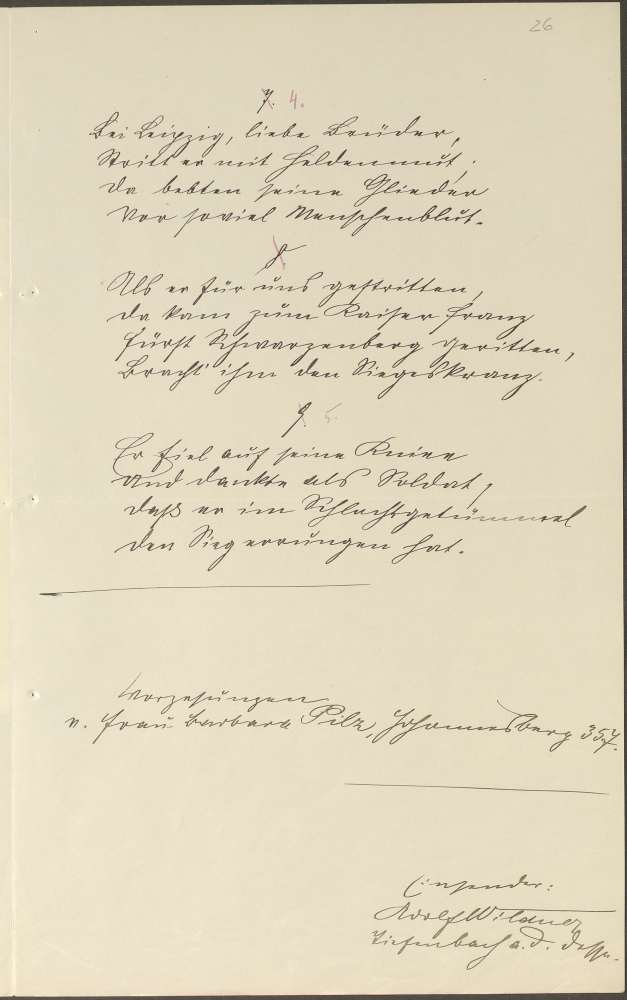 26
7. 4.
Bei Leipzig, liebe Brüder,
Stritt er mit Heldenmut;
Da bebten seine Glieder
Vor soviel Menschenblut.
8
Als er für uns gestritten,
Da kam zum Kaiser Franz
Fürst Schwarzenberg geritten,
Bracht' ihm den Siegeskranz.
9. 5.
Er fiel auf seine Kniee
Und dankte als Soldat,
Daß er im Schlachtgetümmel
Den Sieg errungen hat.
Vorgesungen
v. Frau Barbara Pilz, Johannesberg 357.
Einsender:
Adolf Wildner
Tiefenbach a. d. Desse.